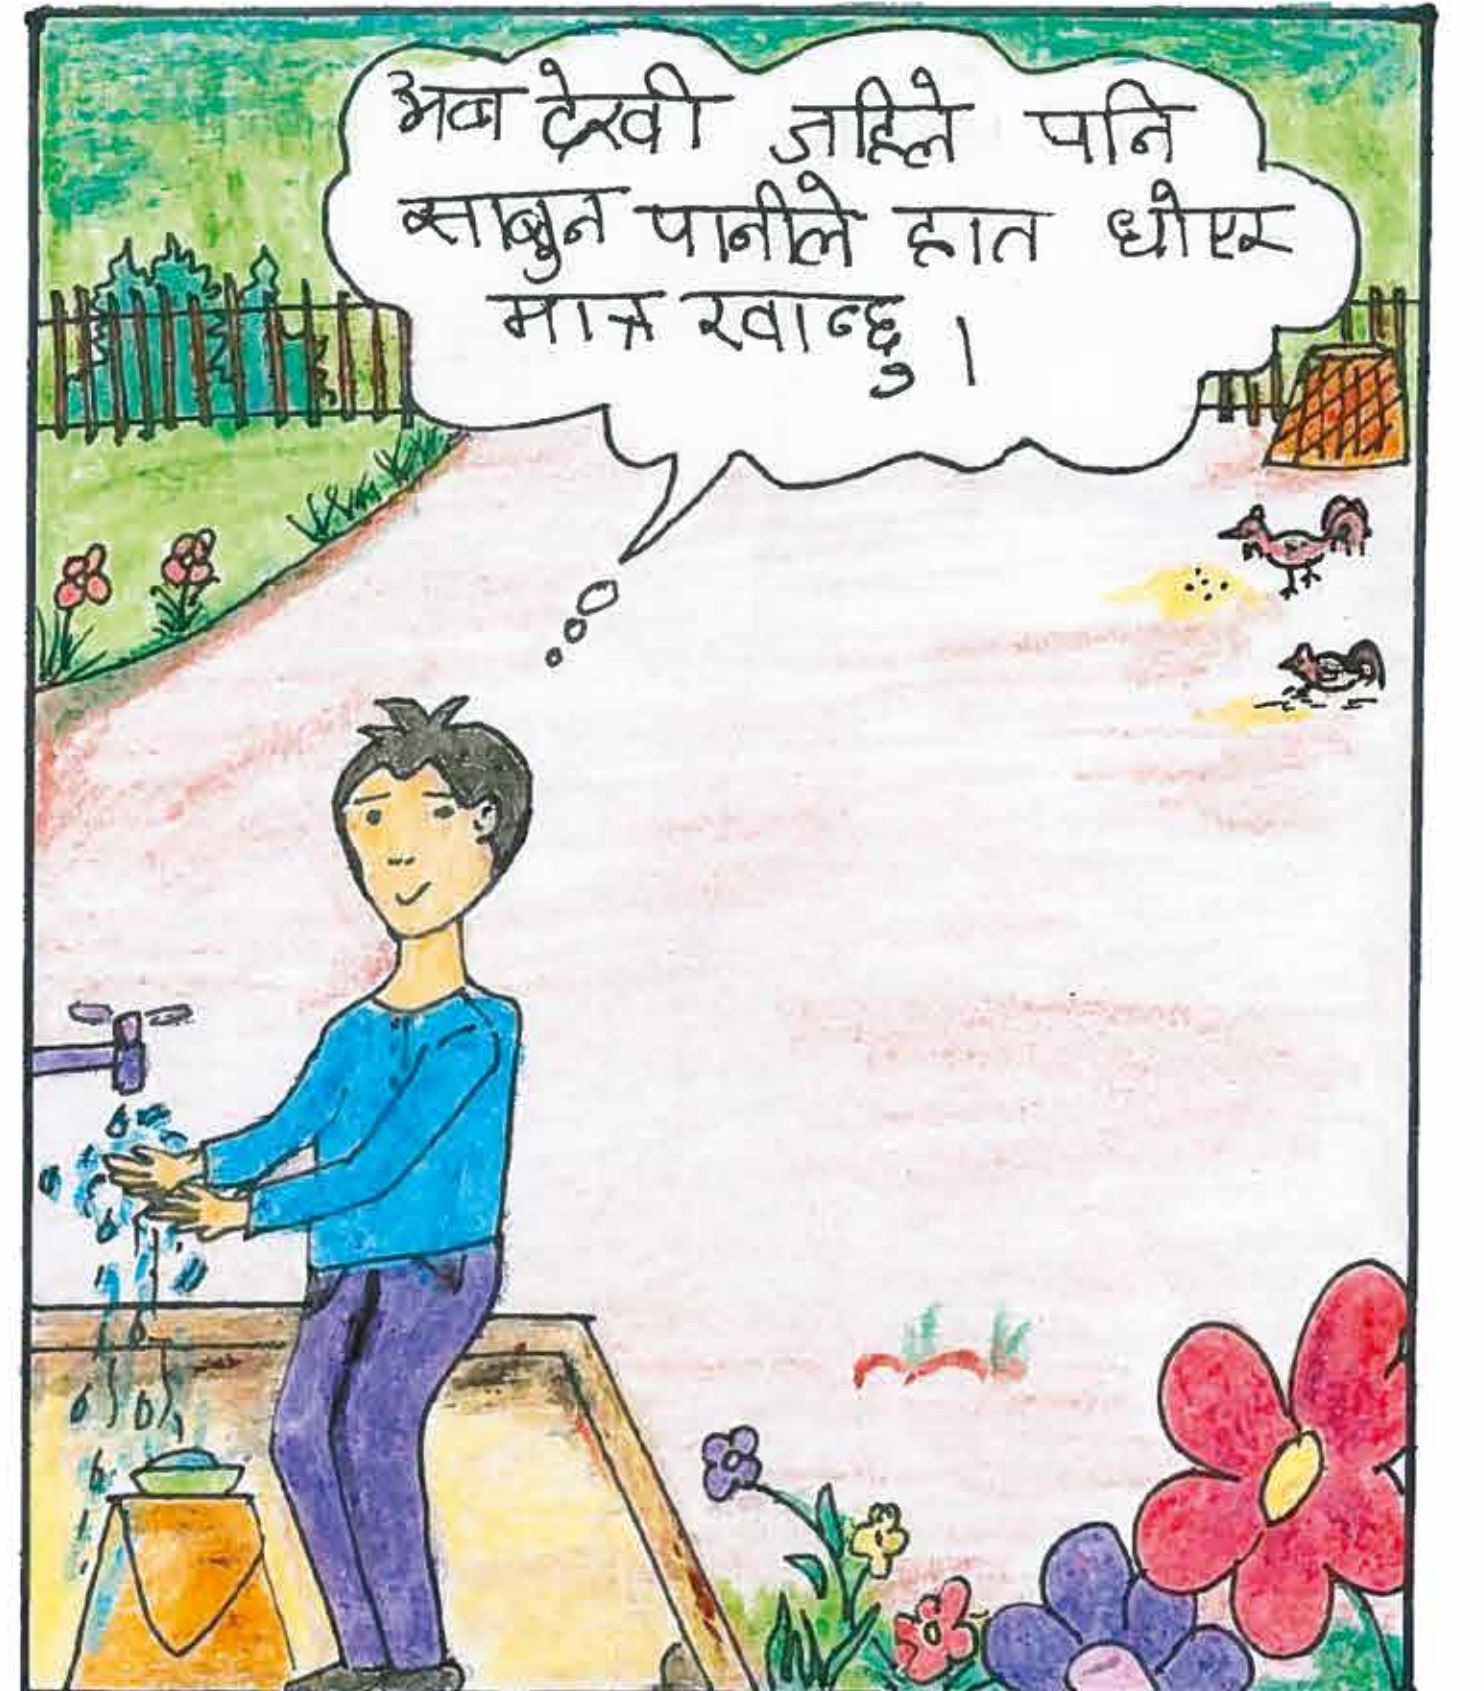 अब देखी जहिले पनि
साबुन पानीले हात धोएर
मात्र खान्छु ।